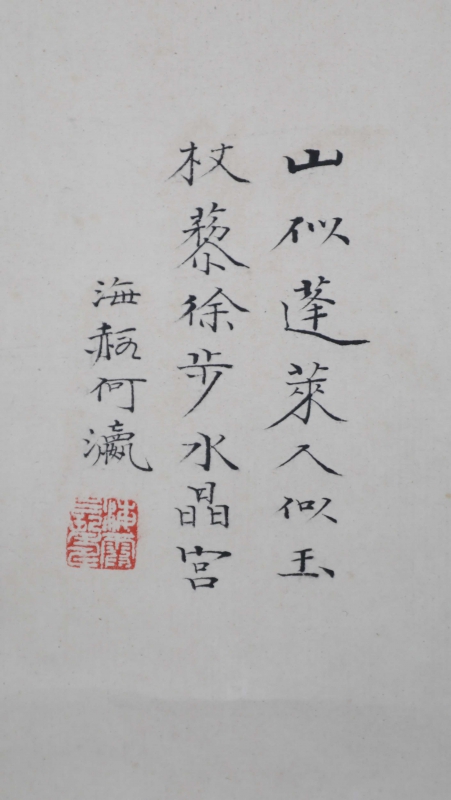 山似蓬萊人似玉
杖藜徐步水晶宮
海赧何瀛